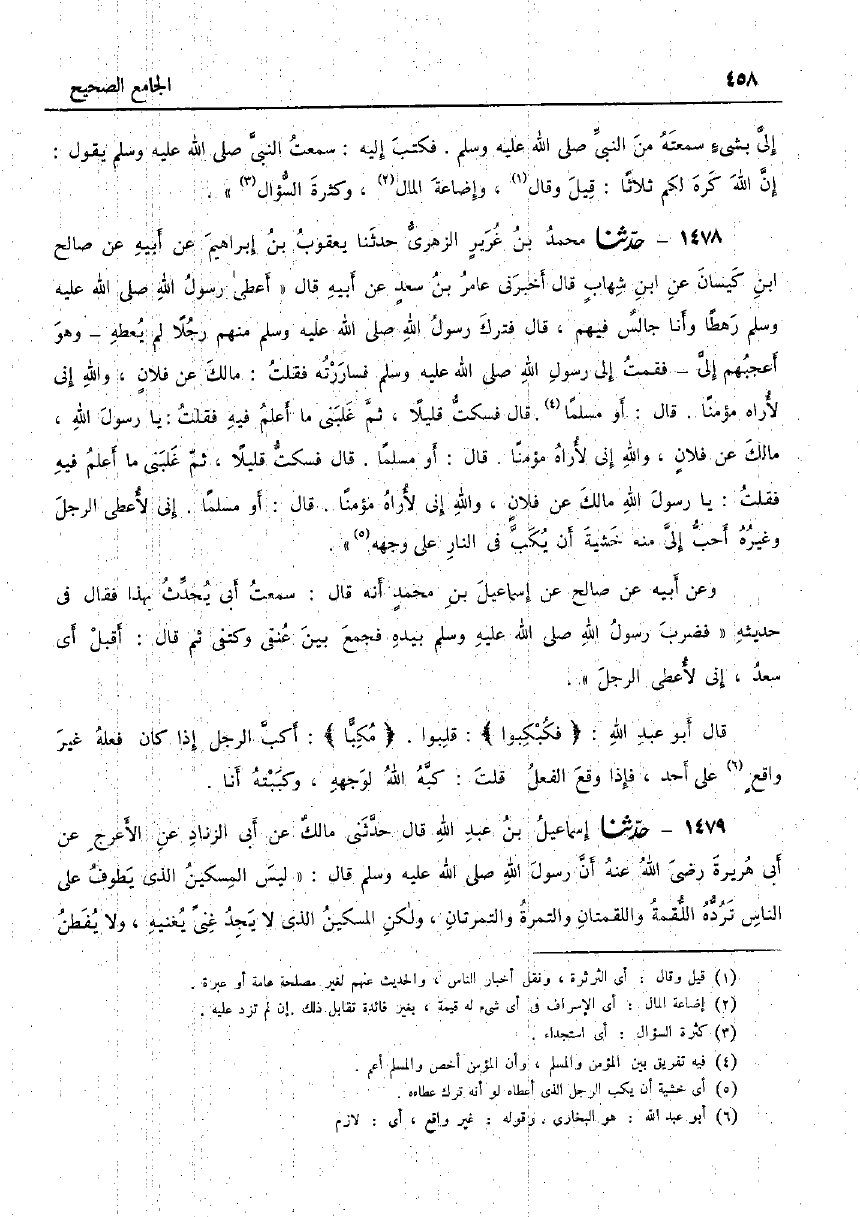 ٤٥٨
الجامع الصحيح
إلىَّ بشىءٍ سمعتَهُ منَ النبىِّ صلى الله عليه وسلم . فكتبَ إليه : سمعتُ النبىَّ صلى الله عليه وسلم يقول :
إنَّ اللهَ كَرِهَ لكم ثلاثًا : قِيلَ وقال(١) ، وإضاعةَ المال(٢) ، وكثرةَ السُّؤال(٣) » .
١٤٧٨ – حدّثنا محمدُ بنُ غُرَيرٍ الزهرىُّ حدثَنا يعقوبُ بنُ إبراهيمَ عن أَبيهِ عن صالح
ابنِ كَيسانَ عنِ ابنِ شِهابٍ قال أَخبرَنى عامرُ بنُ سعدٍ عن أَبيهِ قال « أَعطىٰ رسولُ اللهِ صلى الله عليه
وسلم رَهطًا وأَنا جالسٌ فيهم ، قال فتركَ رسولُ اللهِ صلى الله عليه وسلم منهم رجُلًا لم يُعطهِ – وهوَ
أَعجبُهم إلىَّ – فقمتُ إلى رسولِ اللهِ صلى الله عليه وسلم فسارَرْتُه فقلتُ : مالكَ عن فلانٍ ، واللهِ إنى
لأُراه مؤمنًا . قال : أَو مسلمًا(٤) . قال فسكتُّ قليلًا ، ثمَّ غلبَنى ما أَعلمُ فيهِ فقلتُ : يا رسولَ اللهِ ،
مالكَ عن فلانٍ ، واللهِ إنى لأُراهُ مؤمنًا . قال : أَو مسلمًا . قال فسكتُّ قليلًا ، ثمّ غَلبَنى ما أَعلمُ فيهِ
فقلتُ : يا رسولَ اللهِ مالكَ عن فلانٍ ، واللهِ إنى لأُراهُ مؤمنًا . قال : أَو مسلمًا . إنى لأُعطى الرجلَ
وغيرُهُ أَحبُّ إلىَّ منه خَشيةَ أَن يُكَبَّ فى النارِ على وجهه(٥) » .
وعن أَبيه عن صالح عن إسماعيلَ بنِ محمدٍ أَنه قال : سمعتُ أَبى يُحدِّثُ بهذا فقال فى
حديثهِ « فضربَ رسولُ اللهِ صلى الله عليهِ وسلم بيدهِ فجمعَ بينَ عُنقى وكتفى ثم قال : أَقبلْ أَى
سعدُ ، إنى لأُعطى الرجلَ » .
قال أَبو عبدِ اللهِ : ﴿ فكُبْكِبوا ﴾ : قلِبوا . ﴿ مُكِبًّا ﴾ : أَكبَّ الرجل إذا كان فعلهُ غيرَ
واقعٍ(٦) على أَحد ، فإذا وقعَ الفعلُ قلتَ : كبَّهُ اللهُ لوَجههِ ، وكبَبْتهُ أَنا .
١٤٧٩ – حدّثنا إسماعيلُ بنُ عبدِ اللهِ قال حدَّثَنى مالكٌ عن أَبى الزنادِ عنِ الأَعرجِ عن
أَبى هُريرةَ رضىَ اللهُ عنهُ أَنَّ رسولَ اللهِ صلى الله عليه وسلم قال : « ليسَ المِسكينُ الذى يَطوفُ على
الناسِ تَرُدُّهُ اللُّقمةُ واللقمتانِ والتمرةُ والتمرتانِ ، ولٰكنِ المسكينُ الذى لا يَجِدُ غِنىً يُغنيهِ ، ولا يُفطَنُ
(١) قيل وقال : أى الثرثرة ، ونقل أخبار الناس ، والحديث عنهم لغير مصلحة عامة أو عبرة .
(٢) إضاعة المال : أى الإسراف فى أى شىء له قيمة ، بغير فائدة تقابل ذلك .إن لم تزد عليه .
(٣) كثرة السؤال : أى استجداء .
(٤) فيه تفريق بين المؤمن والمسلم ، وأن المؤمن أخص والمسلم أعم .
(٥) أى خشية أن يكب الرجل الذى أعطاه لو أنه ترك عطاءه .
(٦) أبو عبد الله : هو البخارى . وقوله : غير واقع ، أى : لازم